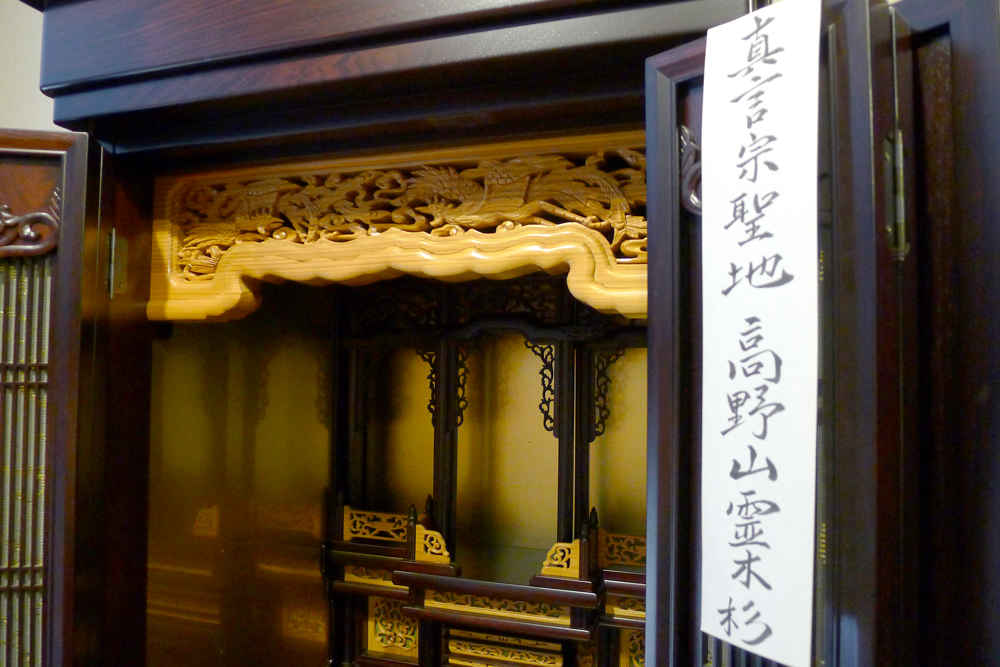 真言宗聖地 高野山霊木杉